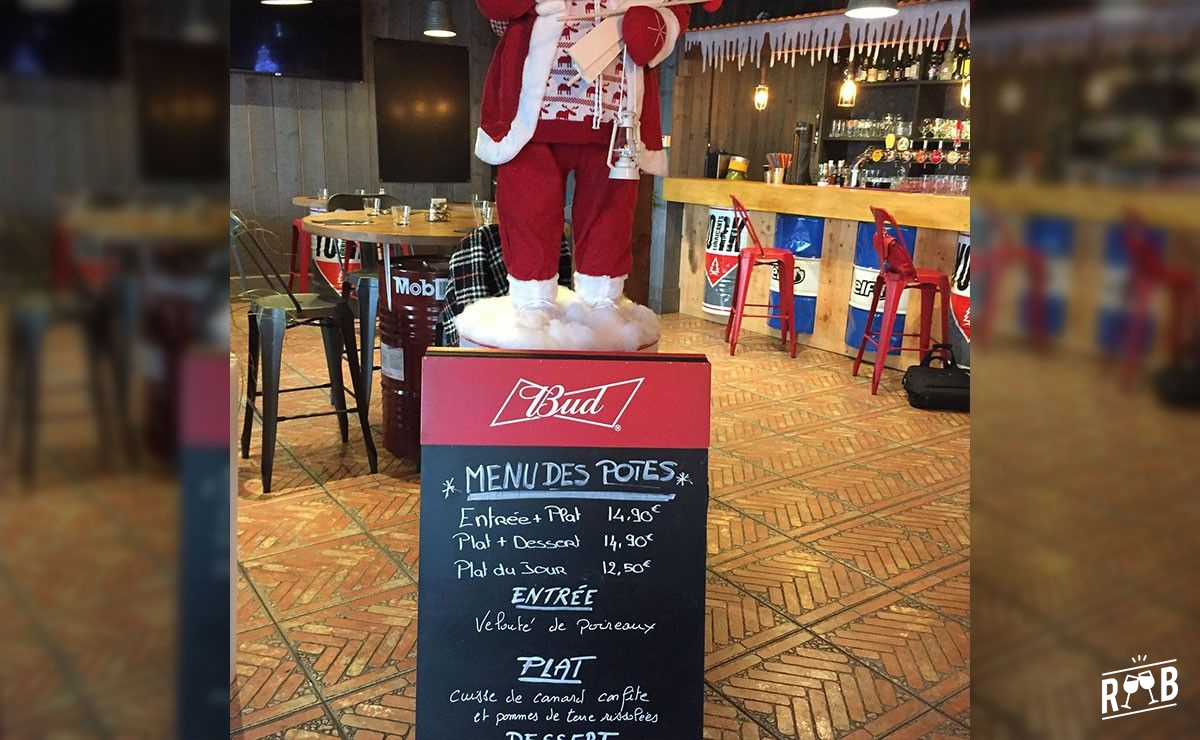 Mobil
elf
elf
Bud
®
* MENU DES POTES *
Entrée + Plat 14,90€
Plat + Dessert 14,90€
Plat du Jour 12,50€
ENTRÉE
Velouté de poireaux
PLAT
Cuisse de canard confite
et pommes de terre rissolées
DESSERT
R B